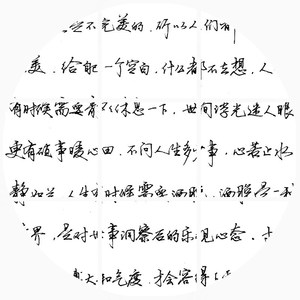 是不完美的，所以人们有
美，给自己一个空白，什么都不去想，人
有时候需要有个休息一下，世间浮光迷人眼
更有破事暖心田，不问人生多少事，心若止水
静如兰，人生有时候需要洒脱，洒脱是一种
境界，是对世事洞察后的乐见心态，
大和气度，才会容得